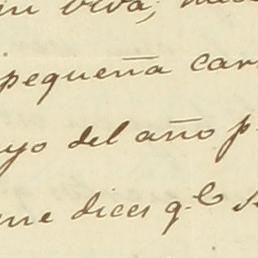 viva,
pequeña car
yo del año p
me dices q.e s